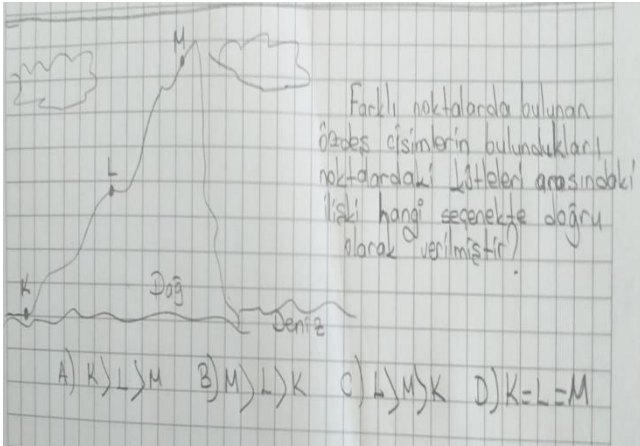 M
Farklı noktalarda bulunan
özdeş cisimlerin bulundukları
noktalardaki kütleleri arasındaki
ilişki hangi seçenekte doğru
olarak verilmiştir?
L
K
Dağ
Deniz
A) K>L>M B) M>L>K C) L>M>K D) K=L=M